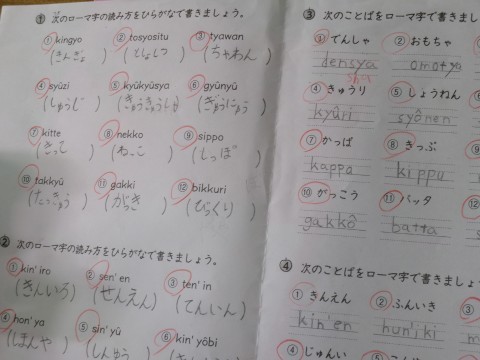 ① 次のローマ字の読み方をひらがなで書きましょう。
① kingyo ② tosyositu ③ tyawan
(きんぎょ) (としょしつ) (ちゃわん)
④ syûzi ⑤ kyûkyûsya ⑥ gyûnyû
(しゅうじ) (きゅうきゅうしゃ) (ぎゅうにゅう)
⑦ kitte ⑧ nekko ⑨ sippo
(きって) (ねっこ) (しっぽ)
⑩ takkyû ⑪ gakki ⑫ bikkuri
(たっきゅう) (がっき) (びっくり)
② 次のローマ字の読み方をひらがなで書きましょう。
① kin'iro ② sen'en ③ ten'in
(きんいろ) (せんえん) (てんいん)
④ hon'ya ⑤ sin'yû ⑥ kin'yôbi
③ 次のことばをローマ字で書きましょ
① でんしゃ ② おもちゃ
densya omotya
④ きゅうり ⑤ しょうねん
kyûri syônen
⑦ かっぱ ⑧ きっぷ
kappa kippu
⑩ がっこう ⑪ バッタ
gakkô batta
④ 次のことばをローマ字で書きまし
① きんえん ② ふんいき
kin'en hun'iki
④ じゅんい